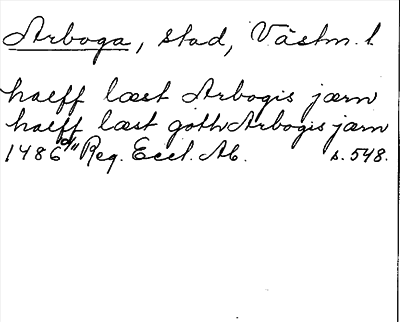 Arboga, stad, Västm. l.
haeff læst Arbogis jærn
haeff læst goth Arbogis jærn
1486 Reg. Eccl. Ab. s. 548.